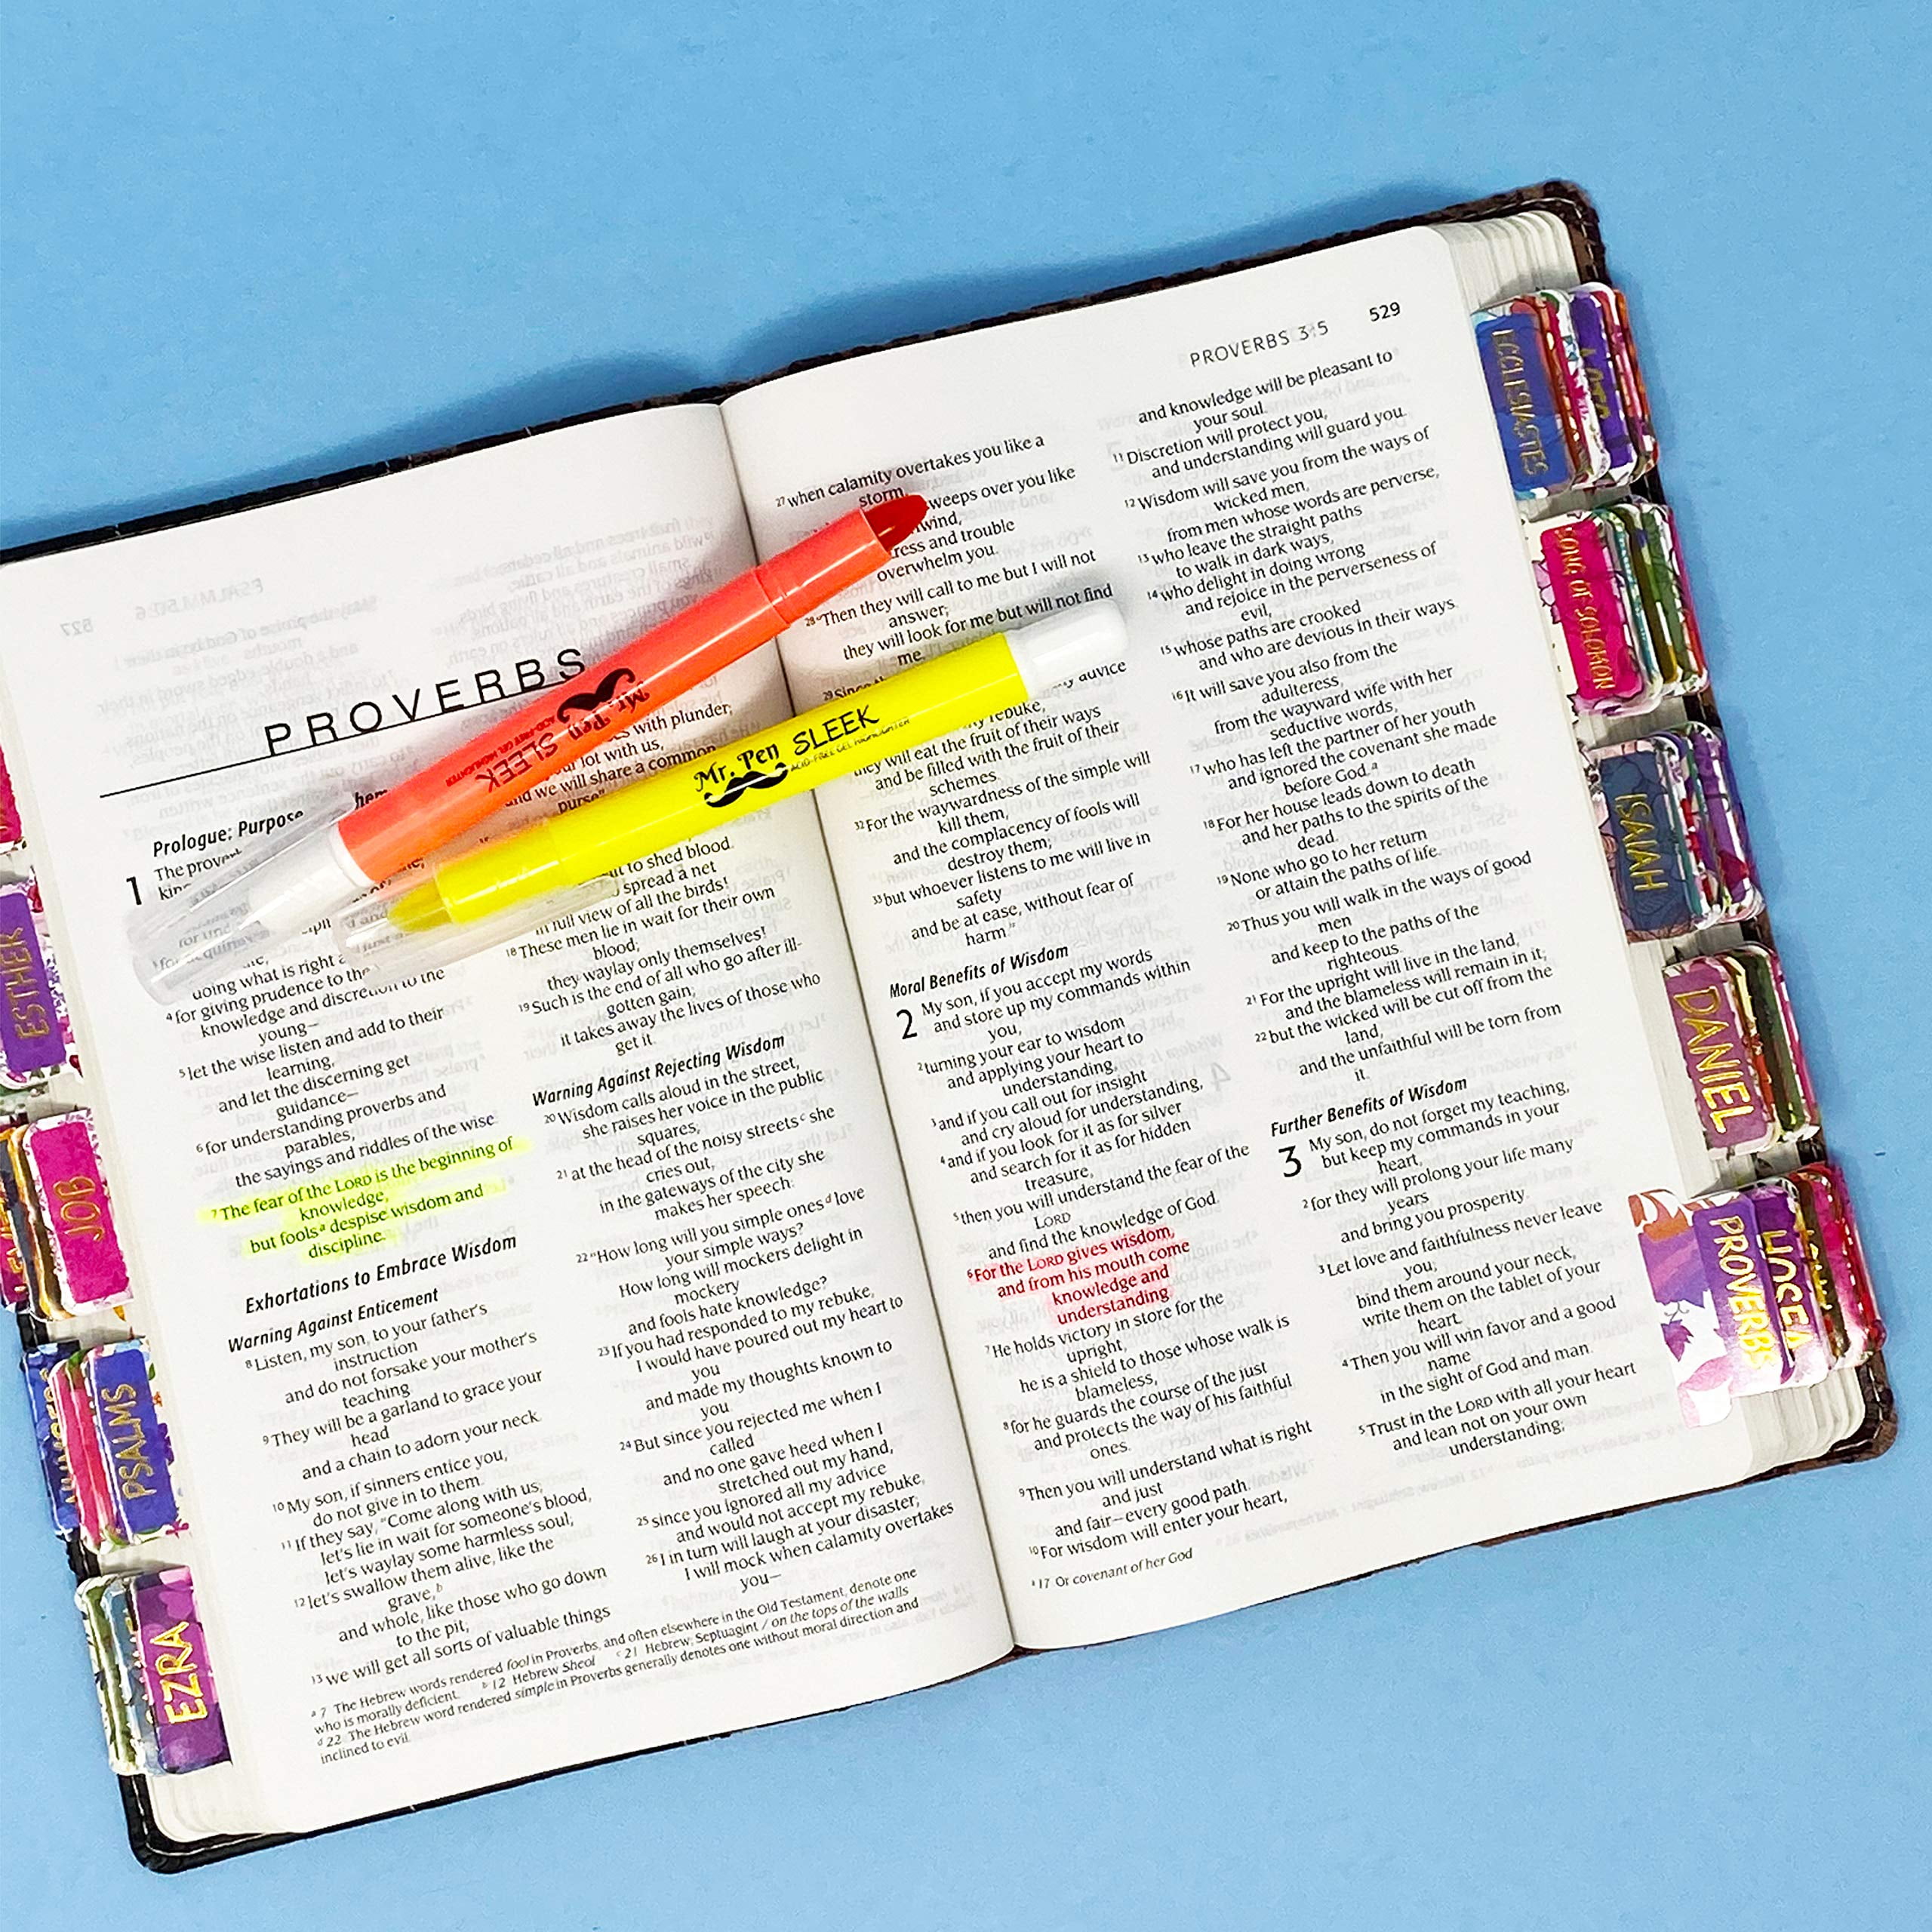 PROVERBS
Prologue: Purpose
1 The
doing what is right
4 for giving prudence to the
knowledge and discretion to the
young—
5 let the wise listen and add to their
learning,
and let the discerning get
guidance—
6 for understanding proverbs and
parables,
the sayings and riddles of the wise.
7 The fear of the LORD is the beginning of
knowledge,
but fools a despise wisdom and
discipline.
Exhortations to Embrace Wisdom
Warning Against Enticement
8 Listen, my son, to your father's
instruction
and do not forsake your mother's
teaching.
9 They will be a garland to grace your
head
and a chain to adorn your neck.
10 My son, if sinners entice you,
do not give in to them.
11 If they say, "Come along with us;
let's lie in wait for someone's blood,
let's waylay some harmless soul;
12 let's swallow them alive, like the
grave, b
and whole, like those who go down
to the pit;
13 we will get all sorts of valuable things
with plunder;
lot with us,
and we will share a common
purse"
to shed blood.
spread a net
in full view of all the birds!
18 These men lie in wait for their own
blood;
they waylay only themselves!
19 Such is the end of all who go after ill-
gotten gain;
it takes away the lives of those who
get it.
Warning Against Rejecting Wisdom
20 Wisdom calls aloud in the street,
she raises her voice in the public
squares;
21 at the head of the noisy streets c she
cries out,
in the gateways of the city she
makes her speech:
22 "How long will you simple ones d love
your simple ways?
How long will mockers delight in
mockery
and fools hate knowledge?
23 If you had responded to my rebuke,
I would have poured out my heart to
you
and made my thoughts known to
you.
24 But since you rejected me when I
called
and no one gave heed when I
stretched out my hand,
25 since you ignored all my advice
and would not accept my rebuke,
26 I in turn will laugh at your disaster;
I will mock when calamity overtakes
you—
a 7 The Hebrew words rendered fool in Proverbs, and often elsewhere in the Old Testament, denote one
who is morally deficient. b 12 Hebrew Sheol c 21 Hebrew; Septuagint / on the tops of the walls
d 22 The Hebrew word rendered simple in Proverbs generally denotes one without moral direction and
inclined to evil.
PROVERBS 3:5 529
27 when calamity overtakes you like a
storm,
sweeps over you like
wind,
overwhelm you.
and trouble
28 "Then they will call to me but I will not
answer;
they will look for me but will not find
me.
29 Since
advice
my rebuke,
they will eat the fruit of their ways
and be filled with the fruit of their
schemes.
32 For the waywardness of the simple will
kill them,
and the complacency of fools will
destroy them;
33 but whoever listens to me will live in
safety
and be at ease, without fear of
harm."
Moral Benefits of Wisdom
2 My son, if you accept my words
and store up my commands within
you,
2 turning your ear to wisdom
and applying your heart to
understanding,
3 and if you call out for insight
and cry aloud for understanding,
4 and if you look for it as for silver
and search for it as for hidden
treasure,
5 then you will understand the fear of the
LORD
and find the knowledge of God.
6 For the LORD gives wisdom,
and from his mouth come
knowledge and
understanding.
7 He holds victory in store for the
upright,
he is a shield to those whose walk is
blameless,
8 for he guards the course of the just
and protects the way of his faithful
ones.
9 Then you will understand what is right
and just
and fair—every good path.
10 For wisdom will enter your heart,
and knowledge will be pleasant to
your soul.
11 Discretion will protect you,
and understanding will guard you.
12 Wisdom will save you from the ways of
wicked men,
from men whose words are perverse,
13 who leave the straight paths
to walk in dark ways,
14 who delight in doing wrong
and rejoice in the perverseness of
evil,
15 whose paths are crooked
and who are devious in their ways.
16 It will save you also from the
adulteress,
from the wayward wife with her
seductive words,
17 who has left the partner of her youth
and ignored the covenant she made
before God. a
18 For her house leads down to death
and her paths to the spirits of the
dead.
19 None who go to her return
or attain the paths of life.
20 Thus you will walk in the ways of good
men
and keep to the paths of the
righteous.
21 For the upright will live in the land,
and the blameless will remain in it;
22 but the wicked will be cut off from the
land,
and the unfaithful will be torn from
it.
Further Benefits of Wisdom
3 My son, do not forget my teaching,
but keep my commands in your
heart,
2 for they will prolong your life many
years
and bring you prosperity.
3 Let love and faithfulness never leave
you;
bind them around your neck,
write them on the tablet of your
heart.
4 Then you will win favor and a good
name
in the sight of God and man.
5 Trust in the LORD with all your heart
and lean not on your own
understanding;
a 17 Or covenant of her God
Mr. Pen SLEEK
ACID-FREE GEL HIGHLIGHTER
Mr. Pen SLEEK
ACID-FREE GEL HIGHLIGHTER
ESTHER
JOB
PSALMS
EZRA
ECCLESIASTES
SONG OF SOLOMON
ISAIAH
DANIEL
PROVERBS
HOSEA